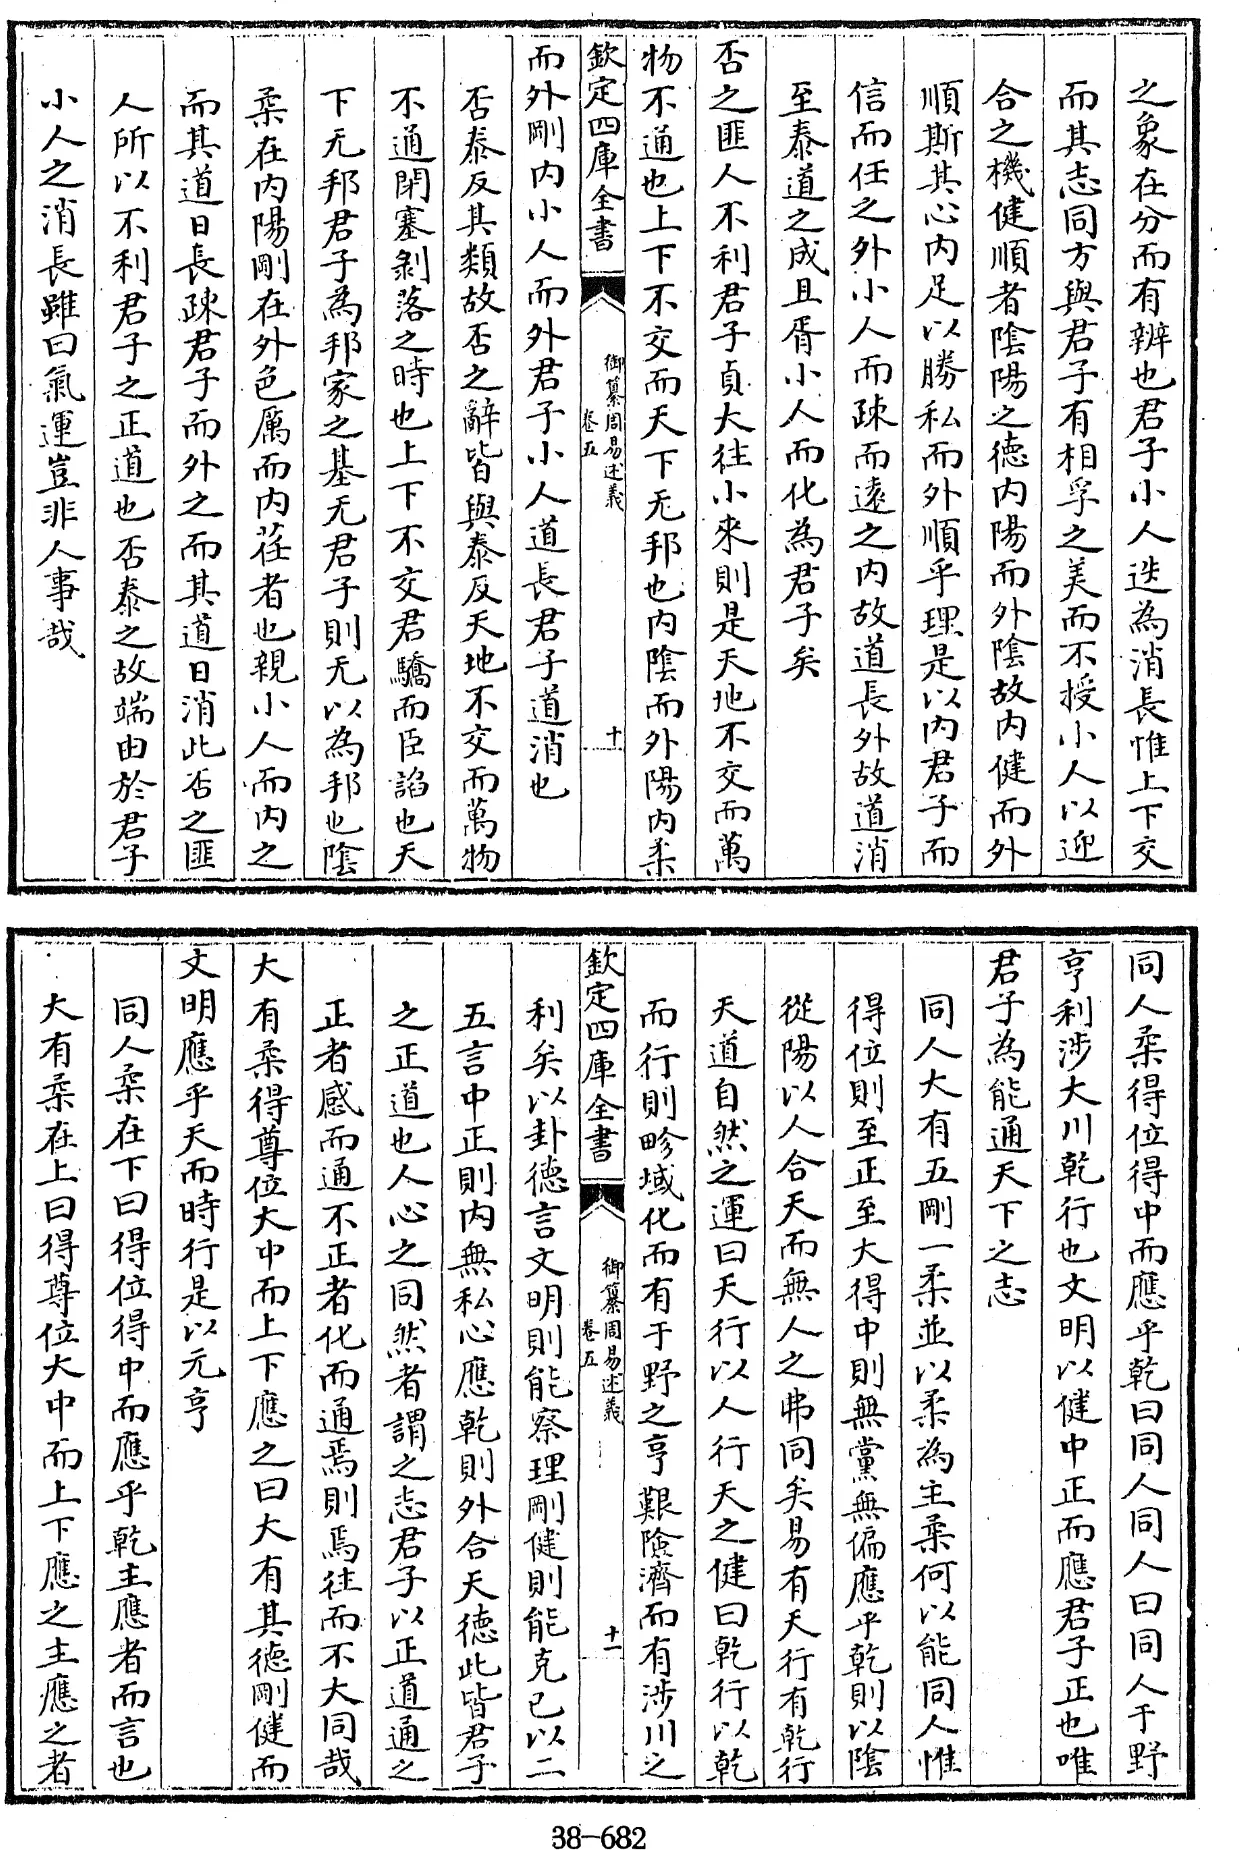 之象在分而有辨也君子小人迭為消長惟上下交
而其志同方與君子有相孚之美而不授小人以迎
合之機健順者陰陽之德内陽而外陰故内健而外
順斯其心内足以勝私而外順乎理是以内君子而
信而任之外小人而疎而遠之内故道長外故道消
至泰道之成且胥小人而化為君子矣
否之匪人不利君子貞大往小來則是天地不交而萬
物不通也上下不交而天下无邦也内陰而外陽内柔
欽定四庫全書
御纂周易述義
卷五
十
而外剛内小人而外君子小人道長君子道消也
否泰反其類故否之辭皆與泰反天地不交而萬物
不通閉塞剝落之時也上下不交君驕而臣諂也天
下无邦君子為邦家之基无君子則无以為邦也陰
柔在内陽剛在外色厲而内荏者也親小人而内之
而其道日長疎君子而外之而其道日消此否之匪
人所以不利君子之正道也否泰之故端由於君子
小人之消長雖曰氣運豈非人事哉
同人柔得位得中而應乎乾曰同人同人曰同人于野
亨利涉大川乾行也文明以健中正而應君子正也唯
君子為能通天下之志
同人大有五剛一柔並以柔為主柔何以能同人惟
得位則至正至大得中則無黨無偏應乎乾則以陰
從陽以人合天而無人之弗同矣易有天行有乾行
天道自然之運曰天行以人行天之健曰乾行以乾
而行則畛域化而有于野之亨艱險濟而有涉川之
欽定四庫全書
御纂周易述義
卷五
十一
利矣以卦德言文明則能察理剛健則能克已以二
五言中正則内無私心應乾則外合天德此皆君子
之正道也人心之同然者謂之志君子以正道通之
正者感而通不正者化而通焉則焉往而不大同哉
大有柔得尊位大中而上下應之曰大有其德剛健而
文明應乎天而時行是以元亨
同人柔在下曰得位得中而應乎乾主應者而言也
大有柔在上曰得尊位大中而上下應之主應之者
38-682